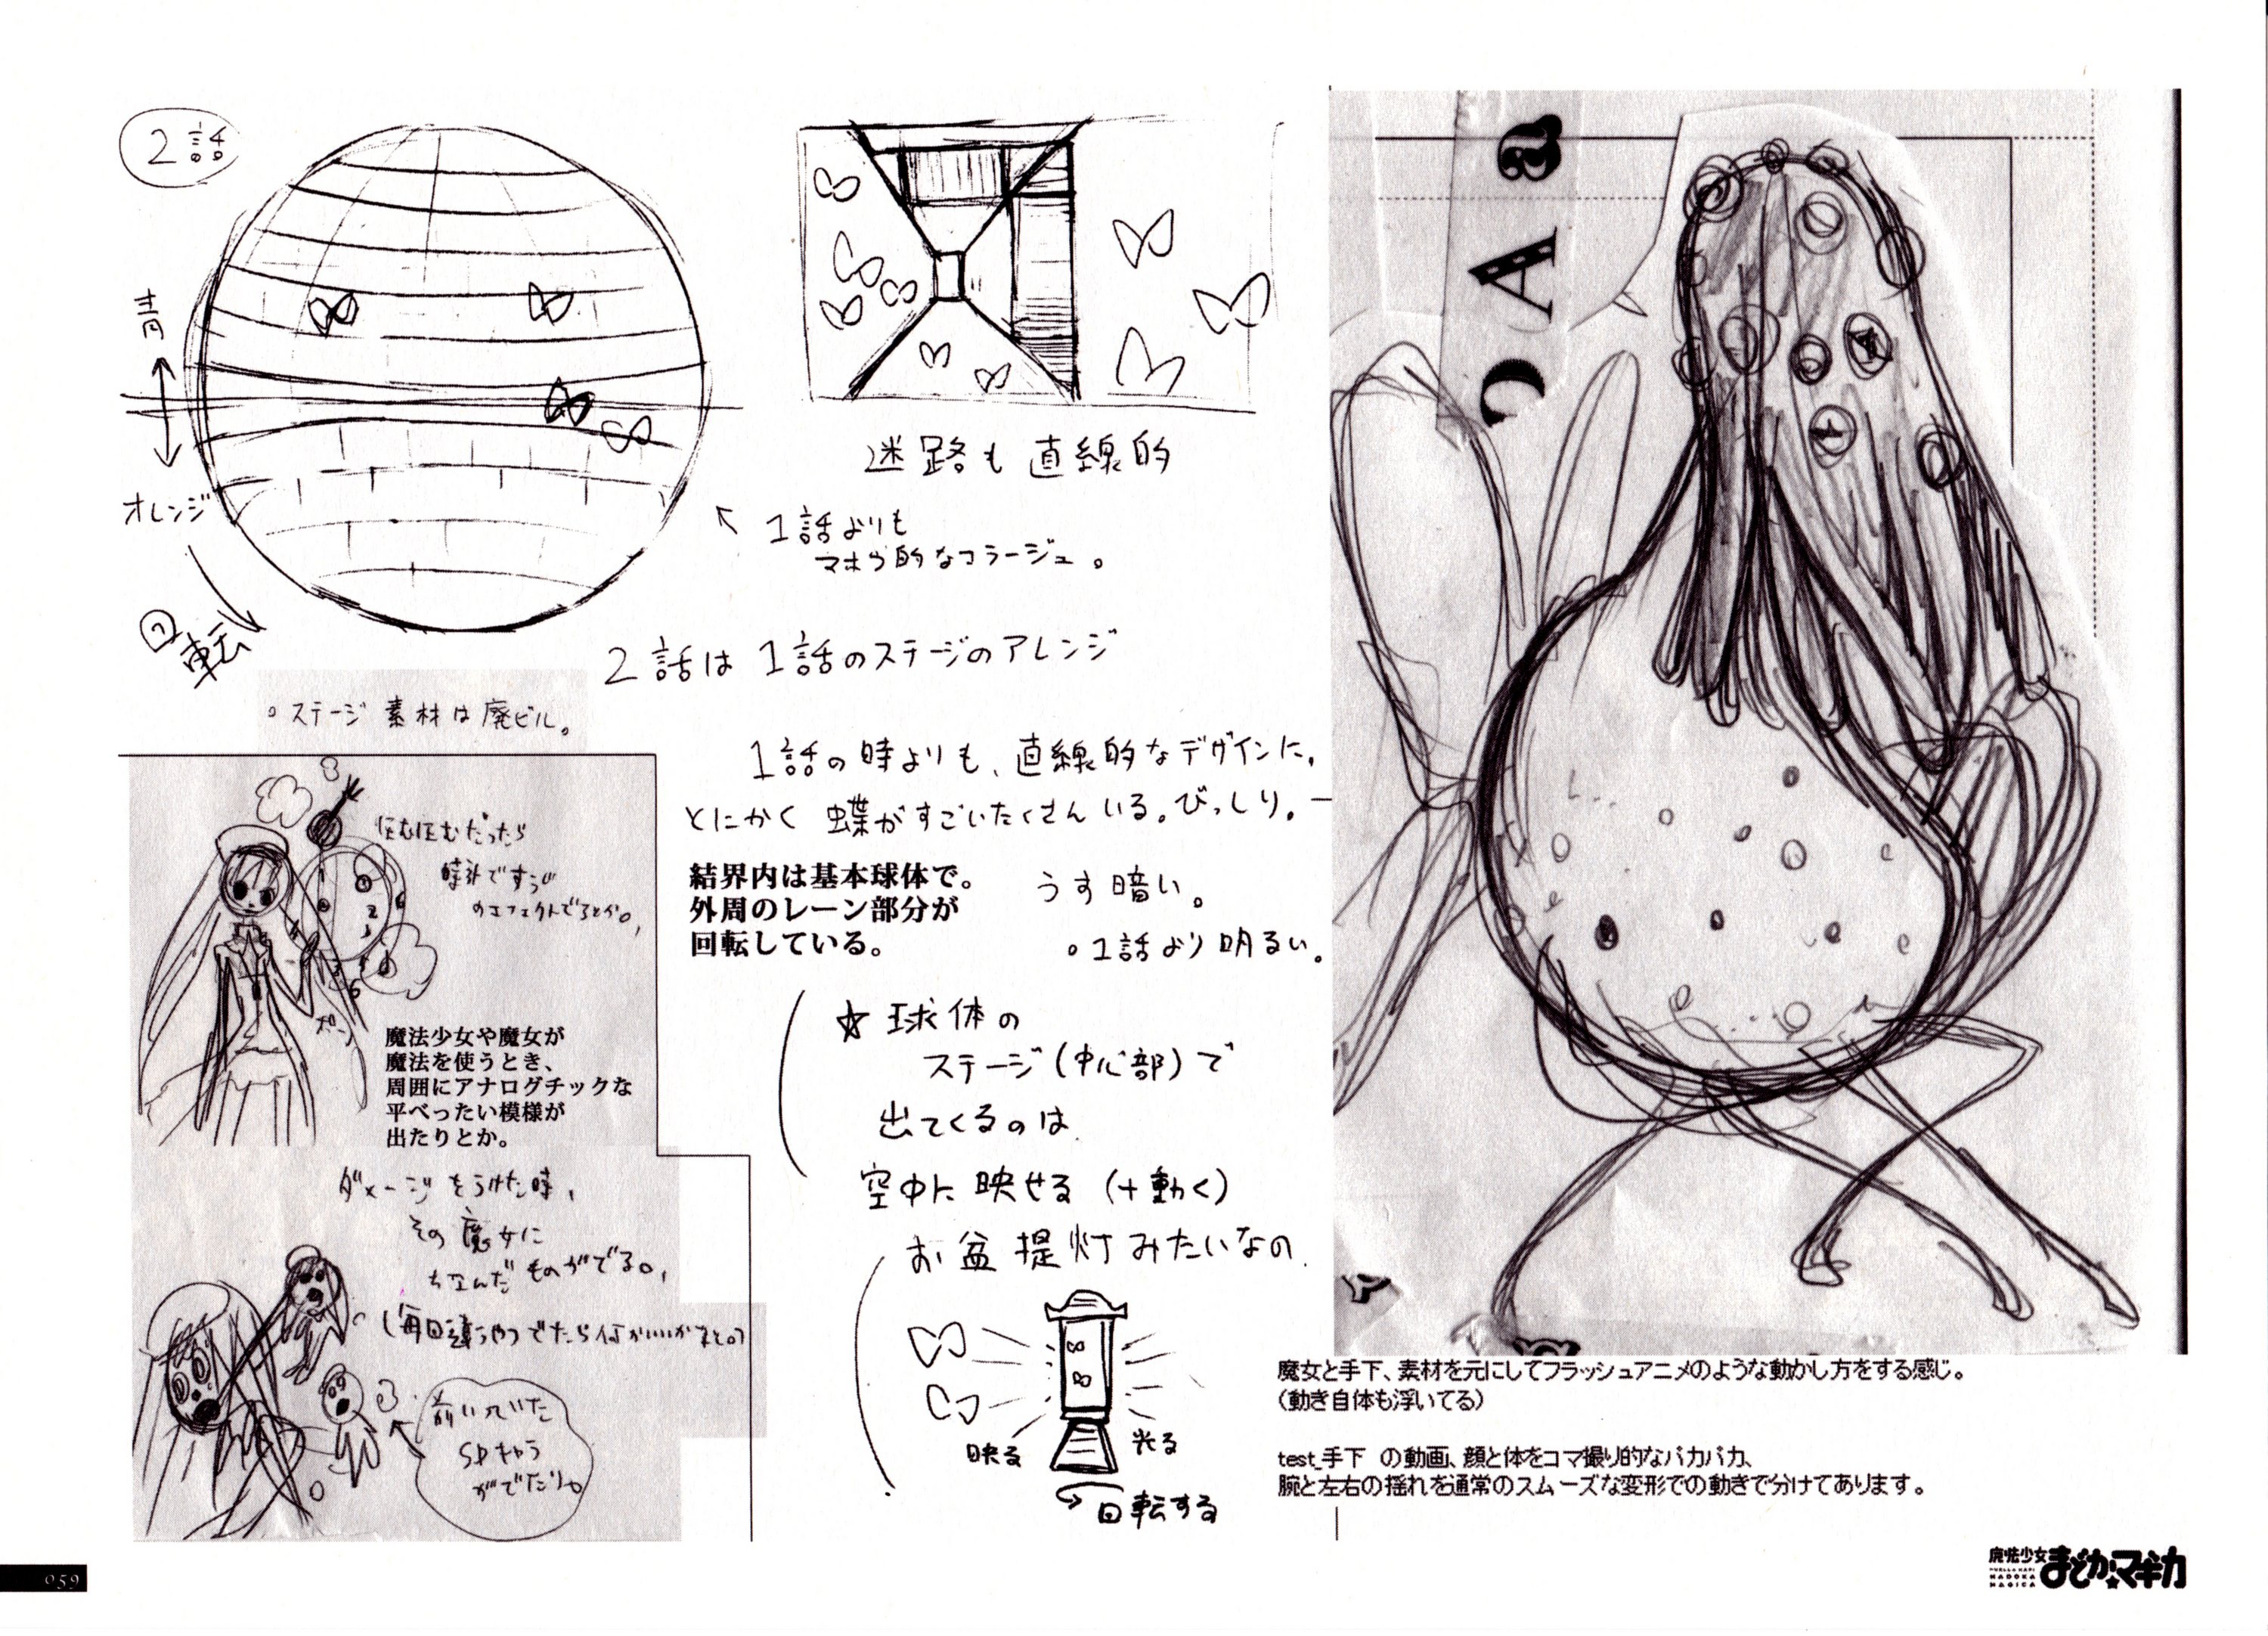 2話
青
オレンジ
回転
迷路も直線的
1話よりも
マホウ的なコラージュ。
2話は1話のステージのアレンジ
。ステージ素材は廃ビル。
1話の時よりも、直線的なデザインに。
とにかく蝶がすごいたくさんいる。びっしり。
結界内は基本球体で。
外周のレーン部分が
回転している。
うす暗い。
。1話より明るい。
☆球体の
ステージ(中心部)で
出てくるのは
空中に映せる(+動く)
お盆提灯みたいなの
映る
光る
回転する
のエフェクトでるとか。
魔法少女や魔女が
魔法を使うとき、
周囲にアナログチックな
平べったい模様が
出たりとか。
ダメージをうけた時、
その魔女に
ちなんだものがでる。
前いっていた
SDキャラ
がでたり。
a
A
魔女と手下、素材を元にしてフラッシュアニメのような動かし方をする感じ。
(動き自体も浮いてる)
test_手下 の動画、顔と体をコマ撮り的なパカパカ、
腕と左右の揺れを通常のスムーズな変形での動きで分けてあります。
059
魔法少女
まどか☆マギカ
PUELLA MAGI
MADOKA
MAGICA